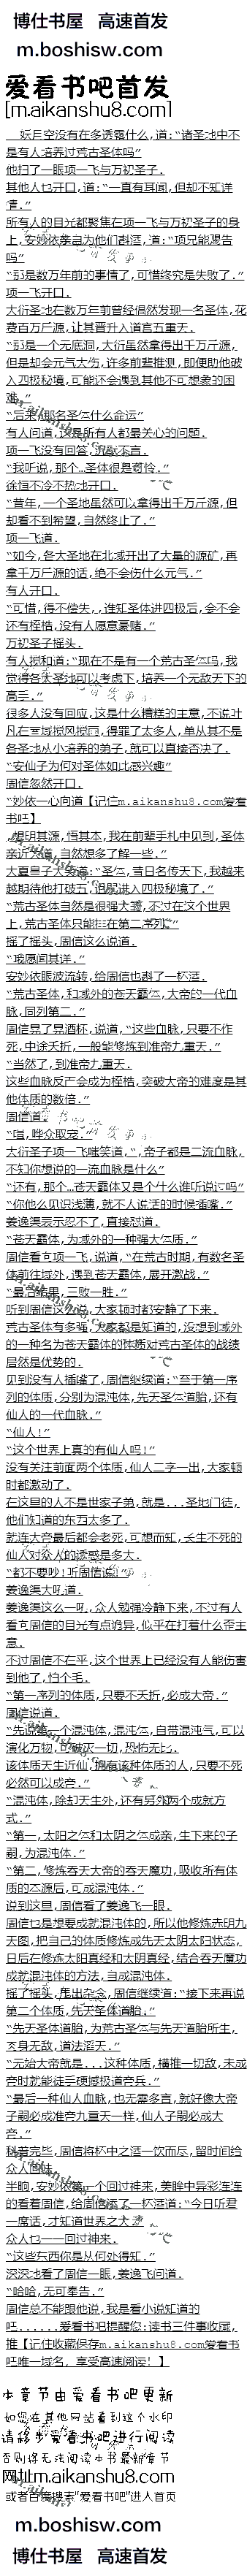 博仕书屋 高速首发
m.boshisw.com
爱看书吧首发
[m.aikanshu8.com]
妖月空没有在多透露什么,道:“诸圣地中不
是有人培养过荒古圣体吗”
他扫了一眼项一飞与万初圣子.
其他人乜开口,道:“一直有耳闻,但却不知详
情.”
所有人的目光都聚焦在项一飞与万初圣子的身
上,安妙依亲自为他们斟酒,道:“项兄能透告
吗”
“那是数万年前的事情了,可惜终究是失败了.”
项一飞开口.
大衍圣地在数万年前曾经偶然发现一名圣体,花
费百万斤源,让其晋升入道宫五重天.
“那是一个无底洞,大衍虽然拿得出千万斤源,
但是却会元气大伤,许多前辈推测,即便助他破
入四极秘境,可能还会遇到其他不可想象的困
难.”
“后来,那名圣体什么命运”
有人问道,这是所有人都最关心的问题.
项一飞没有回答,沉默不言.
“我听说,那个…圣体很是可怜.”
徐恒不冷不热地开口.
“昔年,一个圣地虽然可以拿得出千万斤源,但
却看不到希望,当然终止了.”
项一飞道.
“如今,各大圣地在北域开出了大量的源矿,再
拿千万斤源的话,绝不会伤什么元气.”
有人开口.
“可惜,得不偿失,,谁知圣体进四极后,会不会
还有桎梏,没有人愿意豪赌.”
万初圣子摇头.
有人提和道:“现在不是有一个荒古圣体吗,我
觉得各大圣地可以考虑下,培养一个无敌天下的
高手.”
很多人没有回应,这是什么糟糕的主意,不说叶
凡在宣域搅风搅雨,得罪了太多人,单从其不是
各圣地从小培养的弟子,就可以直接否决了.
“安仙子为何对圣体如此感兴趣”
周信忽然开口.
“妙依一心向道【记住m.aikanshu8.com爱看
书吧】
,想明其源,悟其本,我在前辈手札中见到,圣体
亲近大道,自然想多了解一些.”
大夏皇子大笑道:“圣体,昔日名传天下,我越来
越期待他打破五,出现进入四极秘境了.”
“荒古圣体自然是很强大哪,不过在这个世界
上,荒古圣体只能排在第二序列”
摇了摇头,周信这么说道.
“哦愿闻其详.”
安妙依眼波流转,给周信也斟了一杯酒.
“荒古圣体,和域外的苍天霸体,大帝的一代血
脉,同列第二.”
周信晃了晃酒杯,说道,“这些血脉,只要不作
死,中途夭折,一般能修炼到准帝九重天.”
“当然了,到准帝九重天.
这些血脉反产会成为桎梏,突破大帝的难度是其
他体质的数倍.”
周信道.
“嗤,哗众取宠.”
大衍圣子项一飞嗤笑道,“,帝子都是二流血脉,
不知你想说的一流血脉是什么”
“还有,那个…苍天霸体又是个什么谁听说过吗”
“你他么见识浅薄,就不人说话的时候插嘴.”
姜逸飞表示忍不了,直接怼道.
“苍天霸体,为域外的一种强大体质.”
周信看向项一飞,说道,“在荒古时期,有数名圣
体前往域外,遇到苍天霸体,展开激战.”
“最后结果,三败一胜.”
听到周信这么说,大家顿时都安静了下来.
荒古圣体有多强,大家都是知道的,没想到域外
的一种名为苍天霸体的体质对荒古圣体的战绩
居然是优势的.
见到没有人插嘴了,周信继续道:“至于第一序
列的体质,分别为混沌体,先天圣体道胎,还有
仙人的一代血脉.”
“仙人!”
“这个世界上真的有仙人吗!”
没有关注前面两个体质,仙人二字一出,大家顿
时都激动了.
在这里的人不是世家子弟,就是...圣地门徒,
他们知道的东西太多了.
就连大帝最后都会老死,可想而知,长生不死的
仙人对众人的诱惑是多大.
“都不要吵!听周信说.”
姜逸飞大吼道.
姜逸飞这么一吼,众人勉强冷静下来,不过有人
看向周信的目光有点诡异,似乎在打着什么歪主
意.
不过周信不在乎,这个世界上已经没有人能伤害
到他了,怕个毛.
“第一序列的体质,只要不夭折,必成大帝.”
周信说道.
“先说第一个混沌体,混沌体,自带混沌气,可以
演化万物,可破灭一切,恐怖无比.
该体质天生近仙,拥有这种体质的人,只要不死
必然可以成帝.”
“混沌体,除却天生外,还有另外两个成就方
式.”
“第一,太阳之体和太阴之体成亲,生下来的子
嗣,为混沌体.”
“第二,修炼吞天大帝的吞天魔功,吸收所有体
质的本源后,可成混沌体.”
说到这里,周信看了姜逸飞一眼.
周信也是想要成就混沌体的,所以他修炼赤明九
天图,把自己的体质修炼成先天太阴太阳状态,
日后在修炼太阳真经和太阴真经,结合吞天魔功
成就混沌体的方法,自成混沌体.
摇了摇头,甩出杂念,周信继续道:“接下来再说
第二个体质,先天圣体道胎.”
“先天圣体道胎,为荒古圣体与先天道胎所生,
肉身无敌,道法滔天.”
“无始大帝就是...这种体质,横推一切敌,未成
帝时就能徒手硬撼极道帝兵.”
“最后一种仙人血脉,也无需多言,就好像大帝
子嗣必成准帝九重天一样,仙人子嗣必成大
帝.”
科普完毕,周信将杯中之酒一饮而尽,留时间给
众人回味.
半晌,安妙依第一个回过神来,美眸中异彩连连
的看着周信,给周信添了一杯酒道:“今日听君
一席话,才知道世界之大.”
众人乜一一回过神来.
“这些东西你是从何处得知.”
深深地看了周信一眼,姜逸飞问道.
“哈哈,无可奉告.”
周信总不能跟他说,我是看小说知道的
吧......爱看书吧提醒您:读书三件事收藏,
推【记住收藏保存m.aikanshu8.com爱看书
吧唯一域名, 享受高速阅读! 】
本章节由爱看书吧更新
如您在其他网站看到这个水印
请移步爱看书吧进行阅读
否则将无法阅读本书最新章节
网址m.aikanshu8.com
或者百度搜索"爱看书吧"进入首页
m.boshisw.com
博仕书屋 高速首发